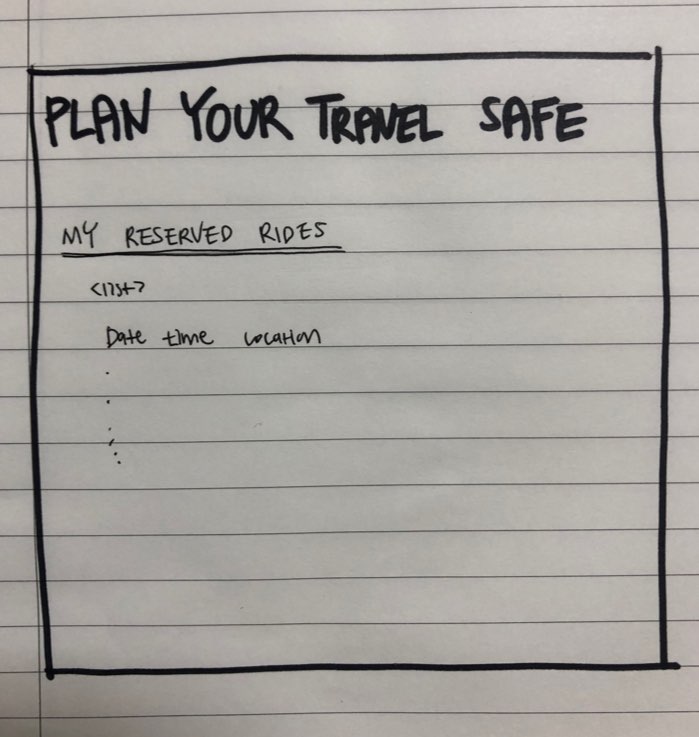 PLAN YOUR TRAVEL SAFE
MY RESERVED RIDES
<list>
Date time location